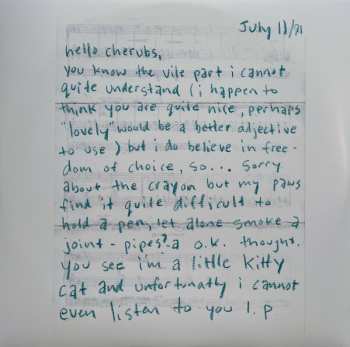 July 11/71
hello cherubs,
you know the vile part i cannot
quite understand (i happen to
think you are quite nice, perhaps
"lovely" would be a better adjective
to use) but i do believe in free-
dom of choice, so... sorry
about the crayon but my paws
find it quite difficult to
hold a pen, let alone smoke a
joint - pipes? - a o.k. thought.
you see i'm a little kitty
cat and unfortunatly i cannot
even listen to you l.p